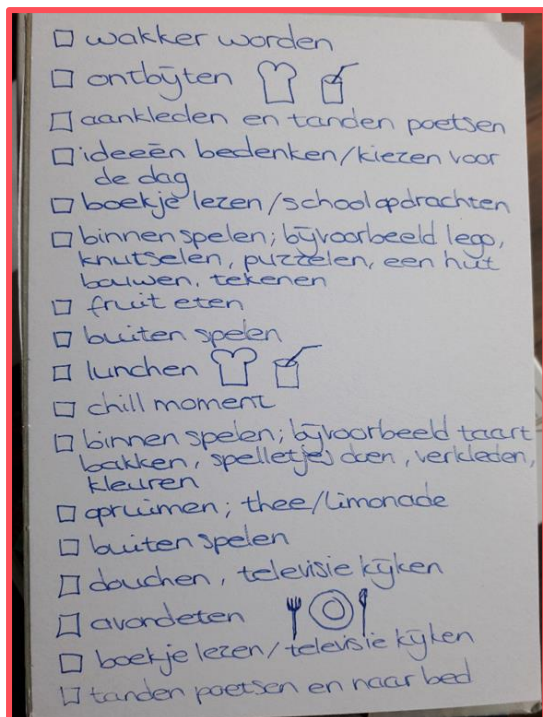 wakker worden
ontbijten
aankleden en tanden poetsen
ideeën bedenken/kiezen voor
de dag
boekje lezen/schoolopdrachten
binnen spelen; bijvoorbeeld lego,
knutselen, puzzelen, een hut
bouwen, tekenen
fruit eten
buiten spelen
lunchen
chill moment
binnen spelen; bijvoorbeeld taart
bakken, spelletjes doen, verkleden,
kleuren
opruimen; thee/limonade
buiten spelen
douchen, televisie kijken
avondeten
boekje lezen/televisie kijken
tanden poetsen en naar bed